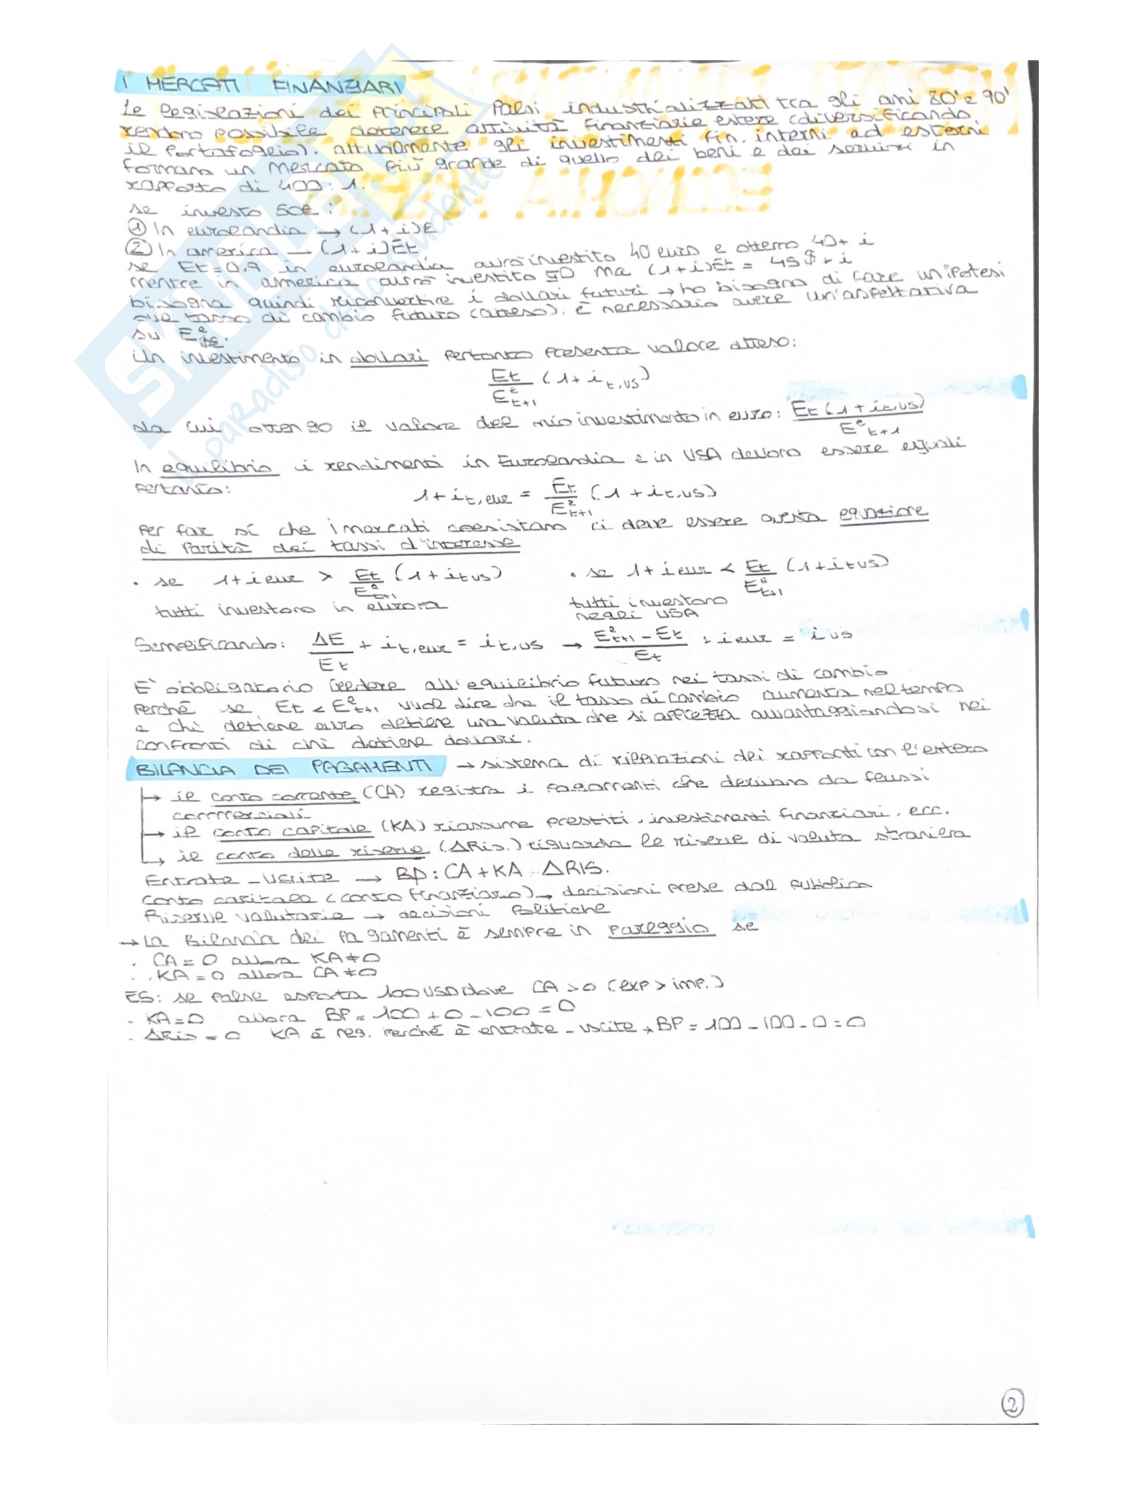 I MERCATI FINANZIARI
Le legislazioni dei principali Paesi industrializzati tra gli anni 80' e 90'
rendono possibile detenere attività finanziarie estere (diversificando
il portafoglio). attualmente gli investimenti fin. interni ad esterni
formano un mercato più grande di quello dei beni e dei servizi in
rapporto di 400:1.
se investo 50€:
① In eurolandia → (1+i)€
② In america → (1+i)Et
se Et=0,9 in eurolandia avrò investito 40 euro e otterrò 40+i
mentre in america avrò investito 50 ma (1+i)Et = 45$+i
bisogna quindi riconvertire i dollari futuri → ho bisogno di fare un'ipotesi
sul tasso di cambio futuro (atteso). è necessario avere un'aspettativa
su E^e
Un investimento in dollari pertanto presenta valore atteso:
Et / E^e t+1 (1 + i t,US)
da cui ottengo il valore del mio investimento in euro: Et (1 + i t,US) / E^e t+1
In equilibrio i rendimenti in Eurolandia e in USA devono essere eguali
pertanto: 1 + i t,eur = Et / E^e t+1 (1 + i t,US)
Per far sì che i mercati coesistano ci deve essere questa equazione
di parità dei tassi d'interesse
• se 1+i eur > Et / E^e t+1 (1+i t US) • se 1+i eur < Et / E^e t+1 (1+i t US)
tutti investono in europa tutti investono
negli USA
Semplificando: ΔE / Et + i t,eur = i t,US → E^e t+1 - Et / Et + i eur = i US
E' obbligatorio credere all'equilibrio futuro nei tassi di cambio
perché se Et < E^e t+1 vuol dire che il tasso di cambio aumenta nel tempo
e chi detiene euro detiene una valuta che si apprezza avvantaggiandosi nei
confronti di chi detiene dollari.
BILANCIA DEI PAGAMENTI → sistema di rilevazioni dei rapporti con l'estero
→ il conto corrente (CA) registra i pagamenti che derivano da flussi
commerciali
→ il conto capitale (KA) riassume prestiti, investimenti finanziari, ecc.
→ il conto delle riserve (ΔRis.) riguarda le riserve di valuta straniera
Entrate - uscite → BP: CA + KA - ΔRIS.
Conto capitale (conto finanziario) → decisioni prese dal pubblico
Riserve valutarie → decisioni politiche
→ La Bilancia dei pagamenti è sempre in pareggio se
• CA = 0 allora KA ≠ 0
• KA = 0 allora CA ≠ 0
ES: se paese esporta 100 USD dove CA > 0 (exp > imp.)
• KA = 0 allora BP = 100 + 0 - 100 = 0
• ΔRis = 0 KA è neg. perché è entrate - uscite → BP = 100 - 100 - 0 = 0
②